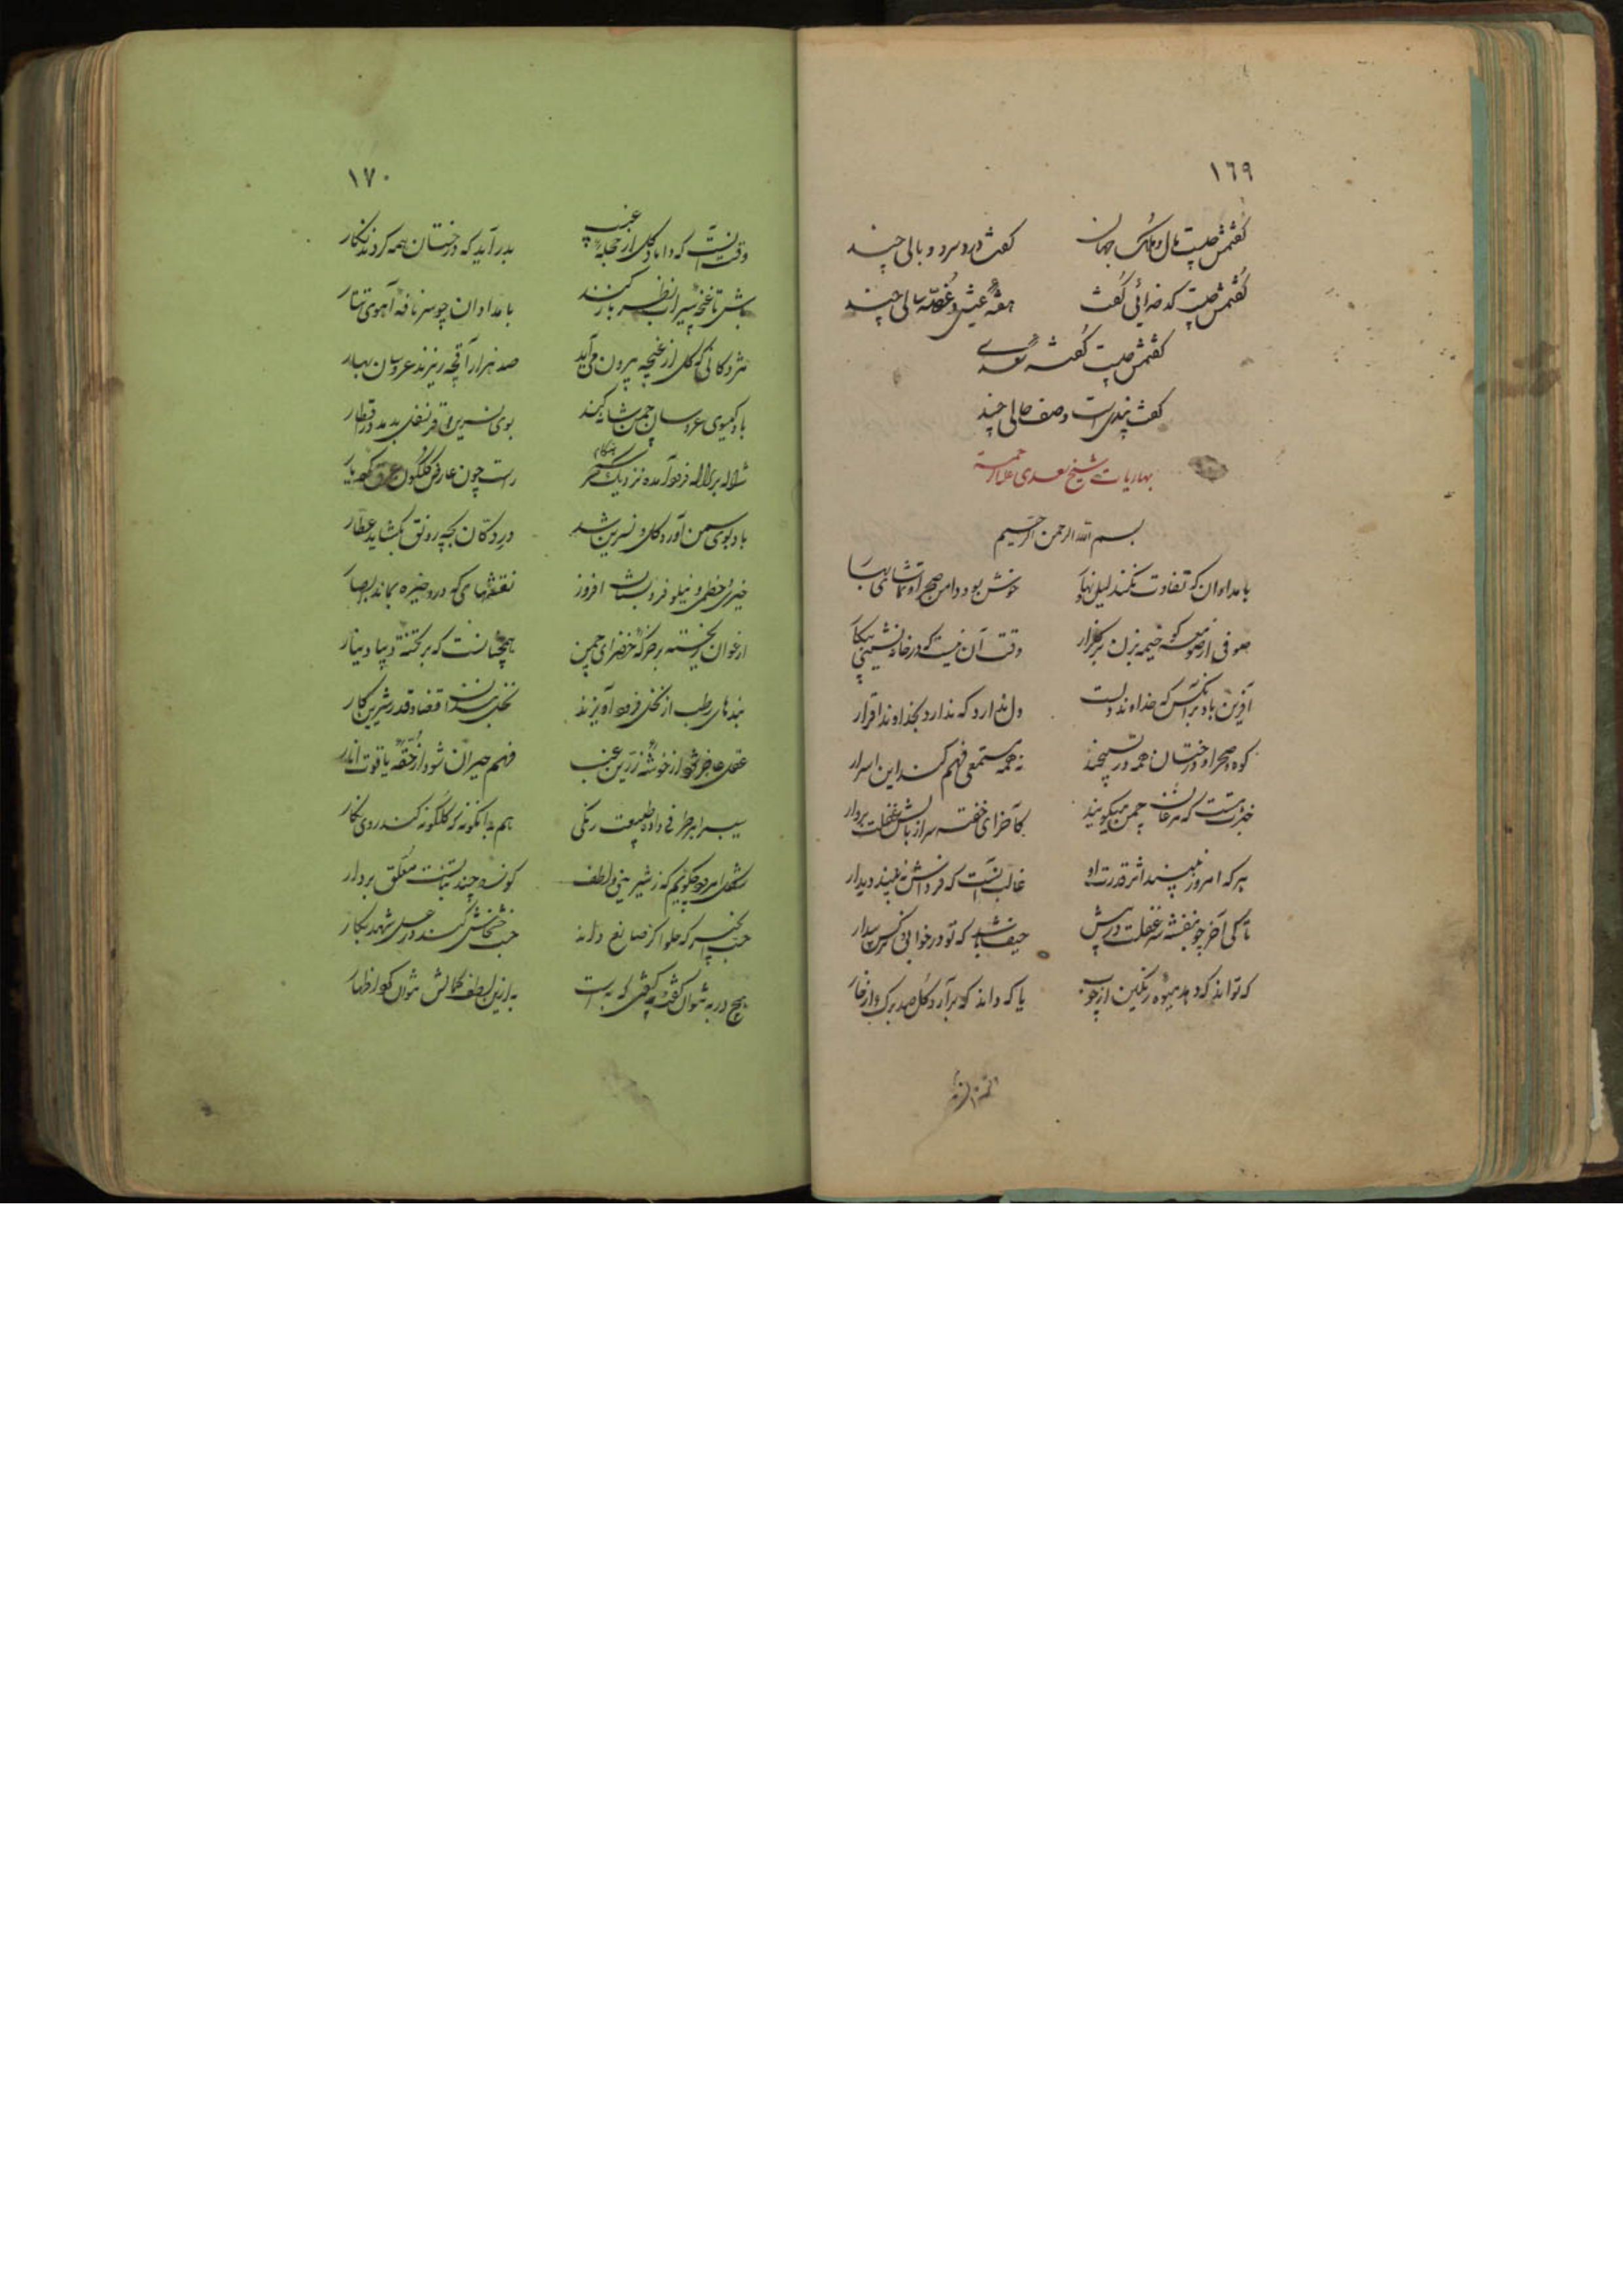 ١٦٩
گفتمش چیست مال و ملک جهان گفت دردسر و وبالی چند
گفتمش چیست کدخدائی گفت هفته عیش و غصه سالی چند
گفتمش چیست گفته سعدی
گفت پندیست وصف حالی چند
بهاریات شیخ سعدی علیه الرحمة
بسم الله الرحمن الرحیم
بامدادان که تفاوت نکند لیل و نهار خوش بود دامن صحرا و تماشای بهار
صوفی از صومعه گو خیمه بزن بر گلزار وقت آن نیست که در خانه نشینی بیکار
آفرین باد بر آنکس که خداوند دلست دل ندارد که ندارد بخداوند اقرار
کوه و صحرا و درختان همه در تسبیحند نه همه مستمعی فهم کند این اسرار
خبرت هست که مرغان چمن میگویند کآخر ای خفته سر از بالش غفلت بردار
هر که امروز نبیند اثر قدرت او غالب آنست که فرداش نه بیند دیدار
تا کی آخر چو بنفشه سر غفلت در پیش حیف باشد که تو در خوابی و نرگس بیدار
که تواند که دهد میوه رنگین از چوب یا که داند که برآرد گل صد برگ از خار
١٧٠
وقت آنست که داماد گل از حجله غیب بدر آید که درختان همه کردند نگار
باش تا غنچه سیراب نظر باز کند بامدادان چو سر نافه آهوی تتار
مژدگانی که گل از غنچه بیرون می آید صد هزار آقچه ریزند عروسان بهار
باد گیسوی عروسان چمن شانه کند بوی نسرین و قرنفل بدمد در اقطار
ژاله بر لاله فرود آمده نزدیک سحر هنگام راست چون عارض گلگون عرق کرده یار
باد بوی سمن آورد و گل و نسرین شد در دکان بچه رونق بگشاید عطار
خیری و خطمی و نیلوفر و بستان افروز نقشهای که درو خیره بماند ابصار
ارغوان ریخته بر خرگه خضرای چمن همچنانست که بر تخته دیبا دینار
بندهای رطب از نخل فرود آویزند نخل بندان قضا و قدر شیرین کار
عقل عاجز شود از خوشه زرین عنب فهم حیران شود از حقه یاقوت انار
سیب را هر طرفی داده طبیعت رنگی هم بدانگونه که گلگونه کند روی نگار
شکل امرود چگویم که ز شیرینی و لطف کوزه چند نباتست معلق بر دار
حب انجیر که حلواگر صانع داند حب خشخاش کند در عسل شهد بکار
هیچ در به نتوان گفت چو گفتی که به است به ازین لطف کمالش نتوان کرد اظهار